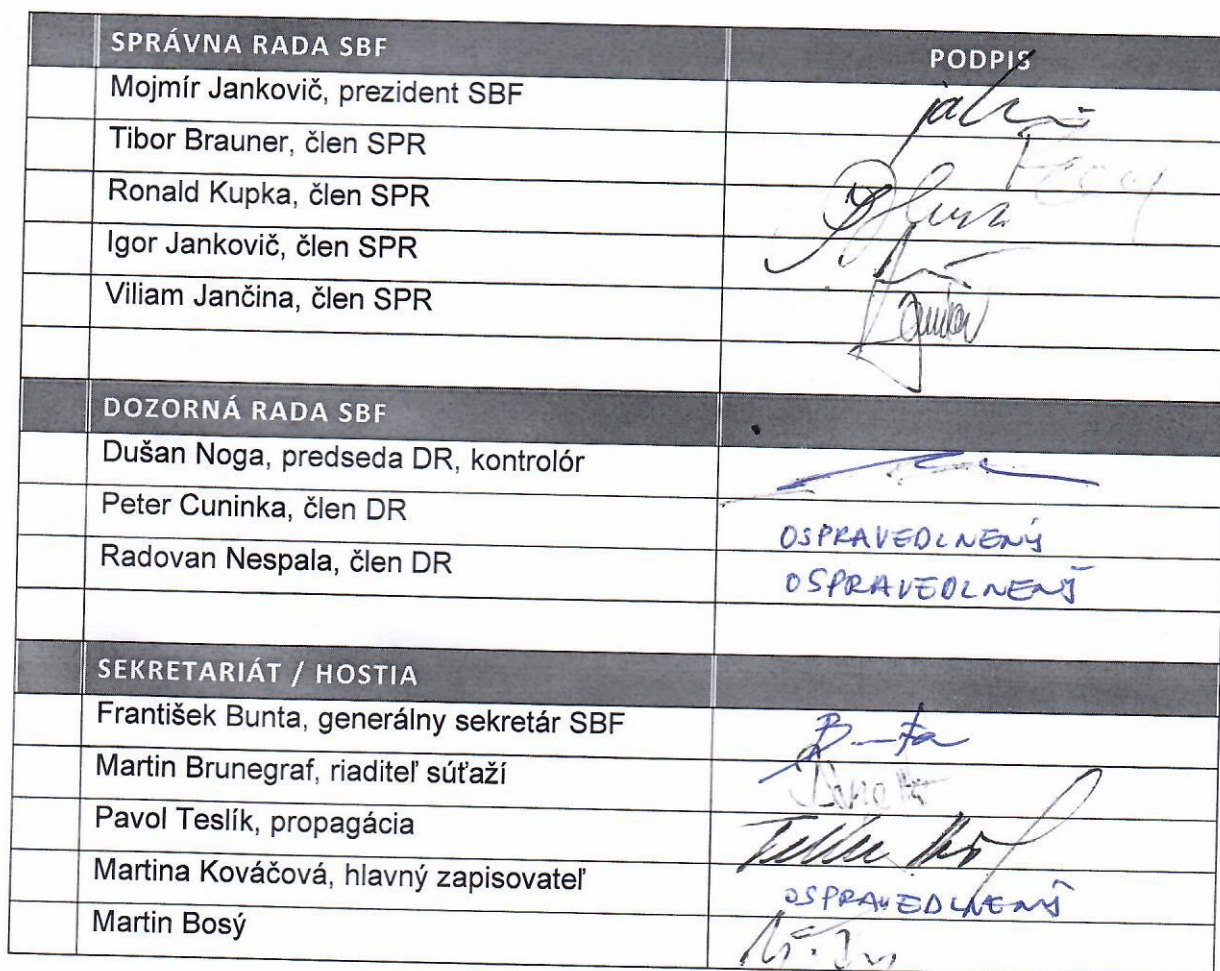 SPRÁVNA RADA SBF PODPIS
Mojmír Jankovič, prezident SBF
Tibor Brauner, člen SPR
Ronald Kupka, člen SPR
Igor Jankovič, člen SPR
Viliam Jančina, člen SPR
DOZORNÁ RADA SBF
Dušan Noga, predseda DR, kontrolór
Peter Cuninka, člen DR OSPRAVEDLNENÝ
Radovan Nespala, člen DR OSPRAVEDLNENÝ
SEKRETARIÁT / HOSTIA
František Bunta, generálny sekretár SBF Bunta
Martin Brunegraf, riaditeľ súťaží
Pavol Teslík, propagácia
Martina Kováčová, hlavný zapisovateľ OSPRAVEDLNENÝ
Martin Bosý